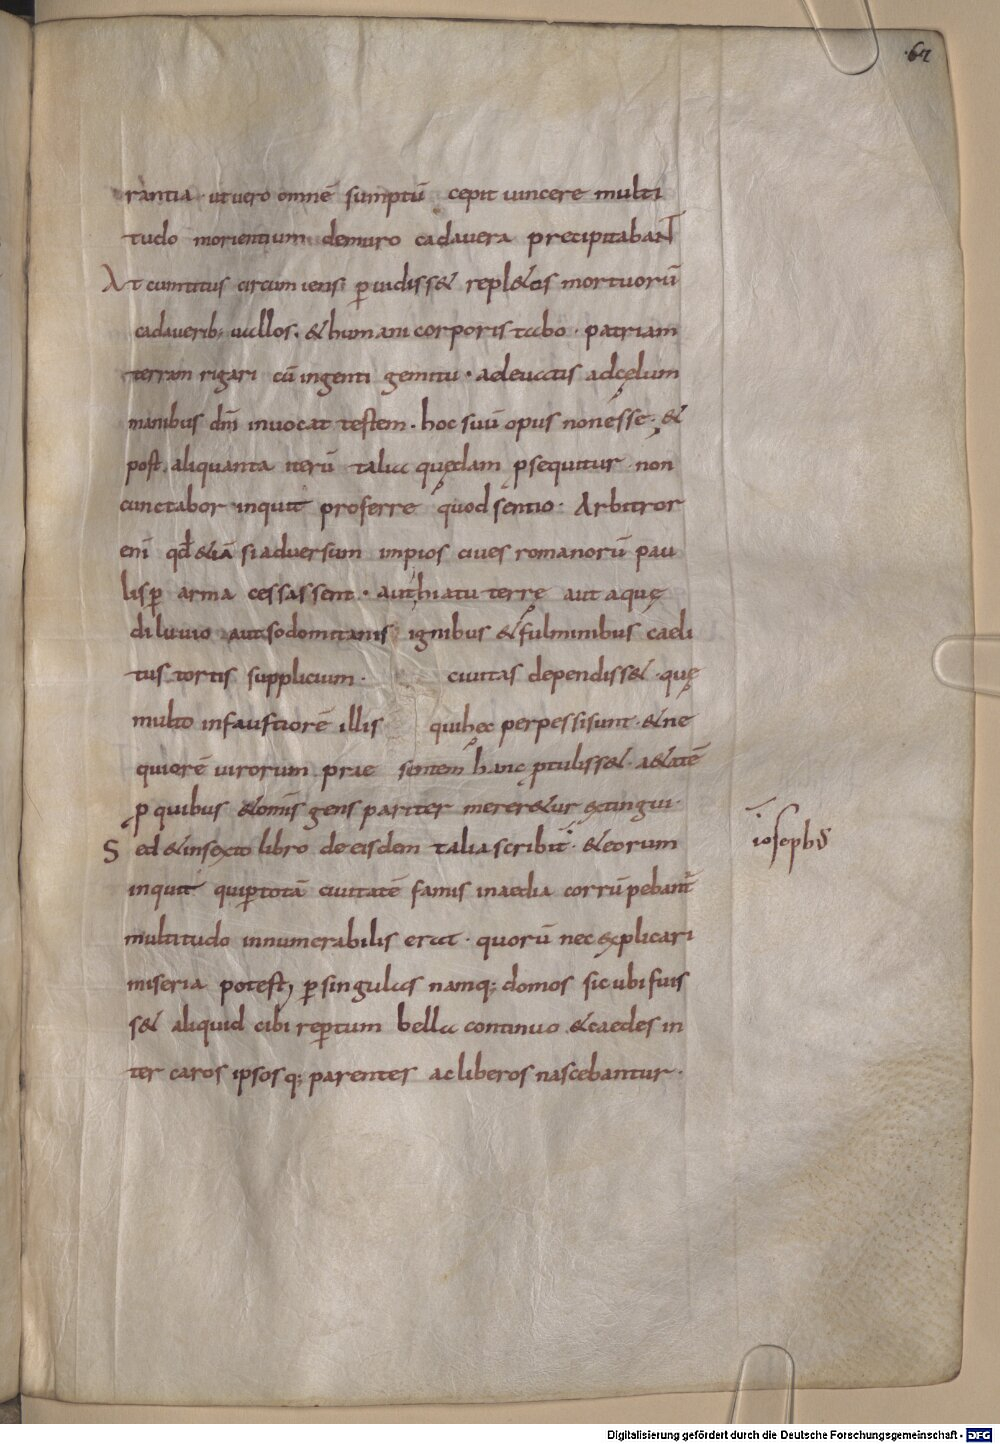 62
rantia · ut uero omnē sumptū cepit uincere multi
tudo morientium demuro cadauera precipitabant
At cum titus circumiens puidiss& repl&as mortuorū
cadauerib; ualles · & humani corporis tabo · patriam
terram rigari cū ingenti gemitu · adeuctis adcęlum
manibus dn̄i inuocat testem · hoc suū opus nonesse · &
post aliquanta iterū talia quędam psequitur · non
cunctabor inquit proferre quod sentio · Arbitror
enī qd &iā si aduersum impios ciues romanorū pau
lisp arma cessassent · aut hiatu terrę aut aquę
diluuio aut sodomitanis ignibus & fulminibus caeli
tus tortis supplicium · ciuitas dependiss& · quę
multo infaustiorē illis qui hęc perpessi sunt · & ne
quiorē uirorum prae sentem hanc ptuliss& · a&atē
p quibus & omīs gens pariter merer&ur extingui ·
Sed & insexto libro de eisdem talia scribit · & eorum
inquit qui p totā ciuitatē famis inaedia corrūpebant
multitudo innumerabilis erat · quorū nec explicari
miseria potest, p singulas namq; domos sic ubi fuis
s& aliquid cibi reptum bella continuo & caedes in
ter caros ipsosq; parentes ac liberos nascebantur ·
iosephus
Digitalisierung gefördert durch die Deutsche Forschungsgemeinschaft - DFG